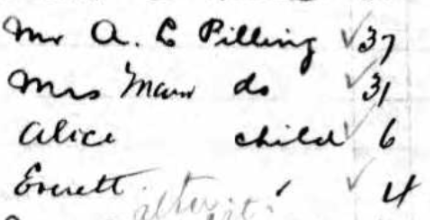 Mr A. L Pilling ✓37
Mrs do ✓31
Alice child ✓ 6
Everett " ✓ 4